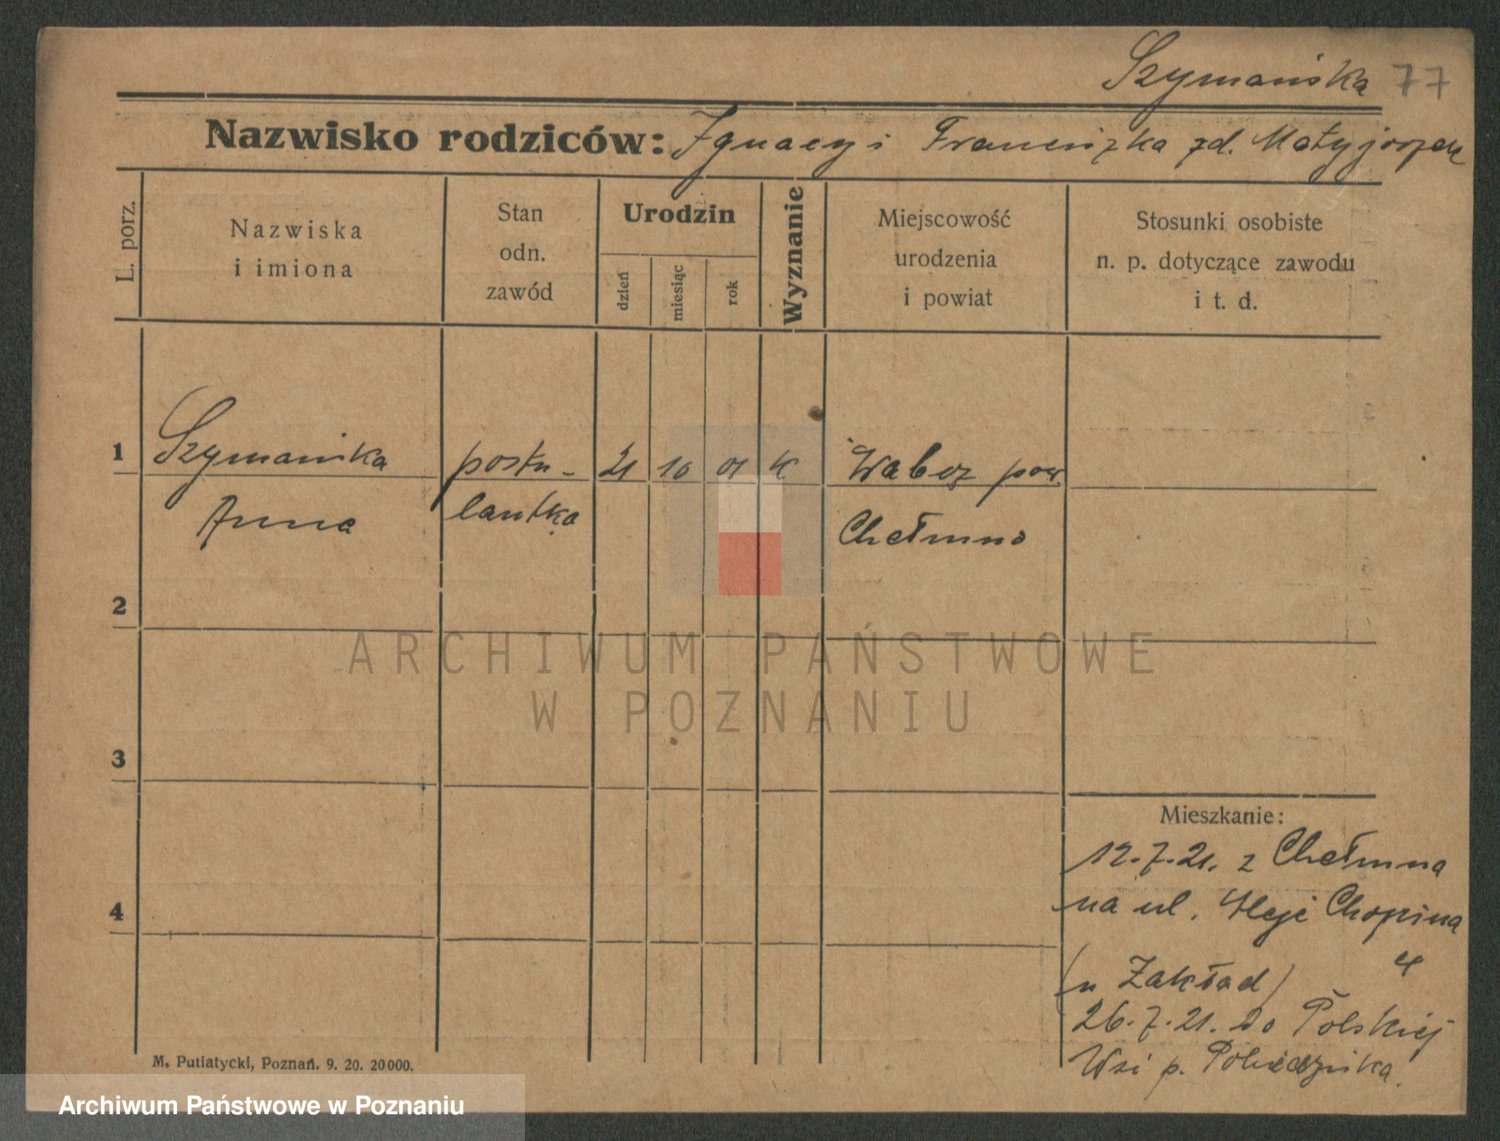 Szymańska 77
Nazwisko rodziców: Ignacy i Franciszka zd. Matyjaszek
L. porz.
Nazwiska
i imiona
Stan
odn.
zawód
Urodzin
dzień
miesiąc
rok
Wyznanie
Miejscowość
urodzenia
i powiat
Stosunki osobiste
n. p. dotyczące zawodu
i t. d.
1 Szymańska postu- 21 10 01 k Wabcz pow.
Anna lantka Chełmno
2
ARCHIWUM PAŃSTWOWE
W POZNANIU
3
Mieszkanie:
12.7.21. z Chełmna
4 na ul. Aleje Chopina
4
(Zakład)
26.7.21. do Polskiej
Wsi p.
M. Putiatycki, Poznań. 9. 20. 20000.
Archiwum Państwowe w Poznaniu